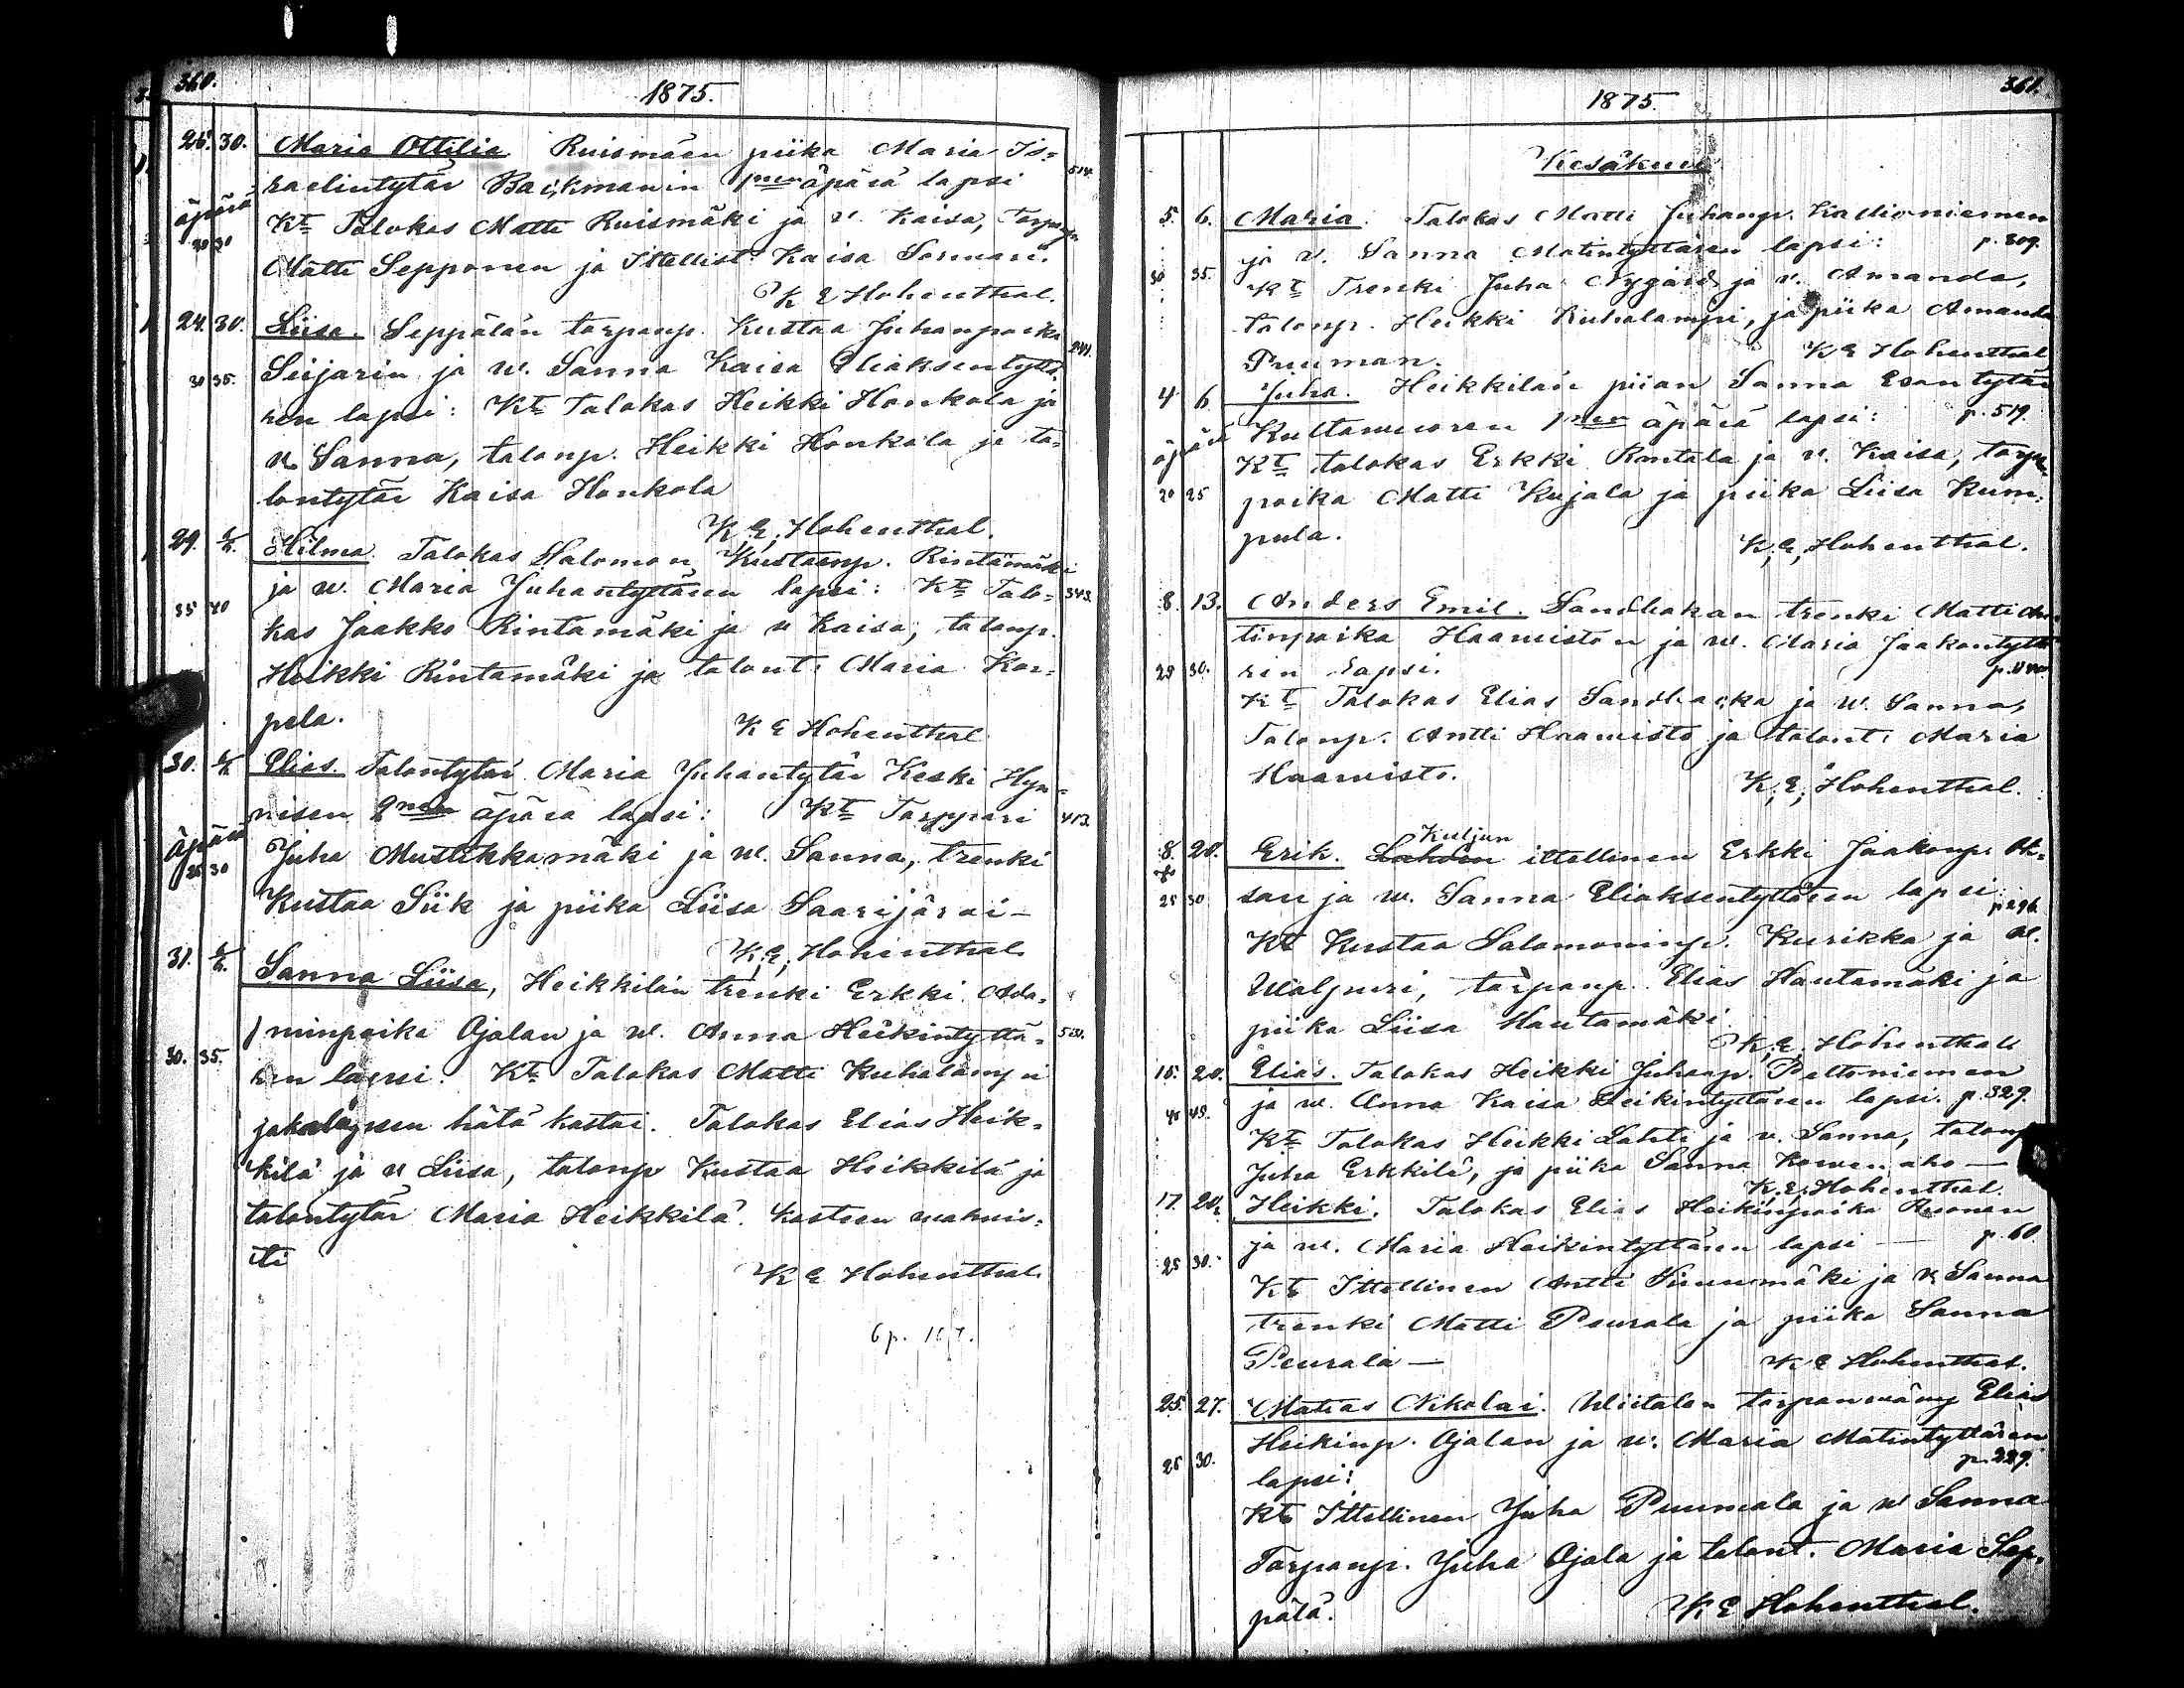 360.
1875.
26. 30. Maria Ottilia Ruismäen piika Maria Is=
raelintytär Backmanin 1sen äpärä lapsi 514.
äpärä Kt Talokas Matti Ruismäki ja v. Kaisa, Torpanp.
30 30 Matti Sepponen ja Ittellist. Kaisa Sorman.
K E Hohenthal.
24. 30. Liisa. Seppälän torpanp. Kustaa Juhanpoika 241.
30 35. Seijarin ja w. Sanna Kaisa Eliaksentyttä
ren lapsi: Kt Talokas Heikki Honkola ja
w. Sanna, talonp. Heikki Honkola ja ta=
lontytär Kaisa Honkola
K. E. Hohenthal.
29. 6/6. Hilma. Talokas Salomon Kustaanp. Rintamäki
ja w. Maria Juhantyttären lapsi: Kt Talo= 343.
35 40 kas Jaakko Rintamäki ja v Kaisa, talonp.
Heikki Rintamäki ja talont. Maria Kor=
pela.
K E Hohenthal
30. 6/6 Elias. Talontytär Maria Juhantytär Keski Hyn=
nisen 2nen äpärä lapsi: Kt Torppari 413.
äpärä Juha Mustikkamäki ja w. Sanna, trenki
25 30 Kustaa Siik ja piika Liisa Saarijärvi –
K. E. Hohenthal
31. 6/6. Sanna Liisa, Heikkilän trenki Erkki Ada=
minpoika Ojalan ja w. Anna Heikintyttä=
30. 35. ren lapsi. Kt Talokas Matti Kuhalampi
joka lapsen hätä kastoi. Talokas Elias Heik=
kilä ja v Liisa, talonp Kustaa Heikkilä ja
talontytär Maria Heikkilä. Kasteen wahwis=
ti
K E Hohenthal
6 p. 10 t.
361.
1875.
Kesäkuu
5. 6. Maria. Talokas Matti Juhanp. Kallioniemen
ja v. Sanna Matintyttären lapsi: p. 309.
30 35. Kt Trenki Juha Nygård ja v. Amanda,
talonp. Heikki Kuhalampi, ja piika Amanda
Pruuman.
K E Hohenthal
4 6 Juha. Heikkilän piian Sanna Esantytär
äpärä Kultawuoren 1sen äpärä lapsi: p. 519.
Kt talokas Erkki Rintala ja v. Kaisa, torpan
20 25 poika Matti Kujala ja piika Liisa Kum=
pula.
K. E. Hohenthal.
8. 13. Anders Emil. Sandbakan trenki Matti An
tinpoika Haawiston ja w. Maria Jaakontyttä
25 30. rin lapsi.
Kt Talokas Elias Sandbacka ja w. Sanna,
Talonp. Antti Haawisto ja talont. Maria
Haawisto.
K. E. Hohenthal.
Kuljun
8. 20. Erik. Lahden ittellinen Erkki Jaakonp. Ok=
25 30 san ja w. Sanna Eliaksentyttären lapsi: p 296
Kt Kustaa Salomoninp. Kurikka ja w.
Walpuri, torpanp. Elias Hautamäki ja
piika Liisa Hautamäki.
K. E. Hohenthal
15. 20. Elias. Talokas Heikki Juhanp. Peltoniemen
40 45. ja w. Anna Kaisa Heikintyttären lapsi. p. 329.
Kt Talokas Heikki Lahti ja v. Sanna, talonp
Juha Erkkilä, ja piika Sanna –
K. E. Hohenthal.
17. 20. Heikki. Talokas Elias Heikinpoika
ja w. Maria Heikintyttären lapsi – p. 60.
25 30. Kt Ittellinen Antti ja v. Sanna
trenki Matti Peurala ja piika Sanna
Peurala –
K E Hohenthal.
25. 27. Matias Nikolai. Wiitalan torpanwäwy Elias
Heikinp. Ojalan ja w. Maria Matintyttären
25 30. lapsi: p. 229.
Kt Ittellinen Juha Puumala ja w Sanna
Torpanp. Juha Ojala ja talont. Maria Sep=
pälä.
K E Hohenthal.